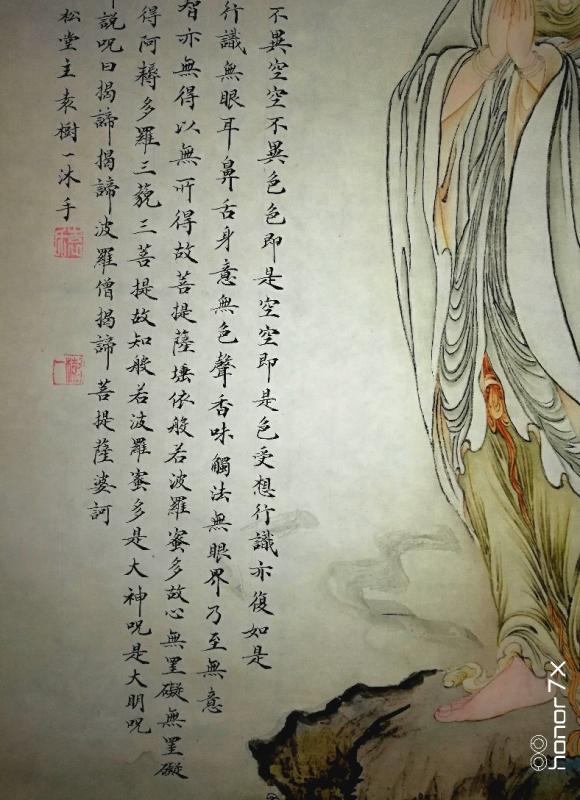 不異空空不異色色即是空空即是色受想行識亦復如是
行識無眼耳鼻舌身意無色聲香味觸法無眼界乃至無意
智亦無得以無所得故菩提薩埵依般若波羅蜜多故心無罣礙無罣礙
得阿耨多羅三藐三菩提故知般若波羅蜜多是大神呪是大明呪
説呪曰揭諦揭諦波羅僧揭諦菩提薩婆訶
松堂主袁樹一沐手
honor 7X